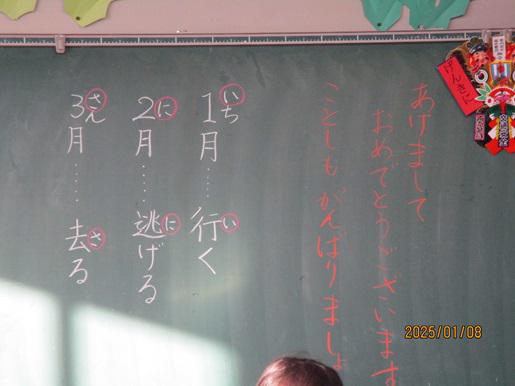 あけまして
おめでとうございます
ことしもがんばりましょ
1月……行く
いち
い
2月……逃げる
に
に
3月……去る
さん
さ
げんきに
2025/01/08